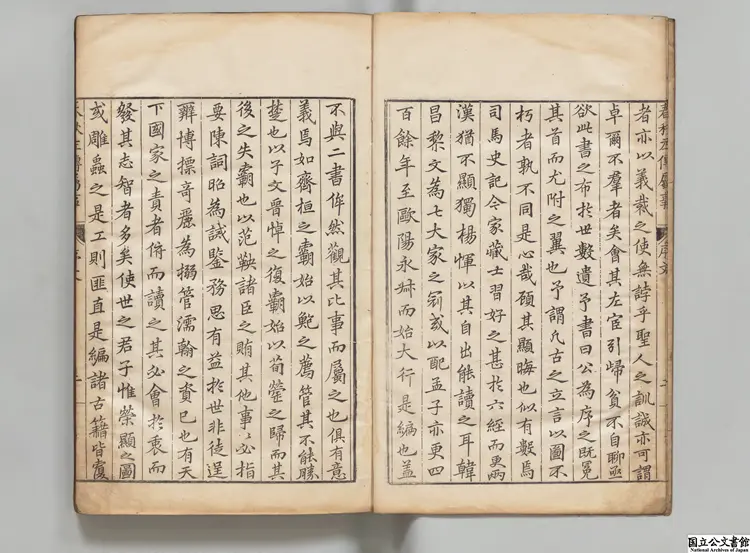 春秋左傳屬事
序文
二
者亦以義裁之使無誖乎聖人之訓誡亦可謂
卓爾不羣者矣會其左宦引歸貧不自聊亟
欲此書之布於世數遺予書曰公為序之既冕
其首而尤附之翼也予謂凢古之立言以圖不
朽者孰不同是心哉顧其顯晦也似有數焉
司馬史記令家藏士習好之甚於六經而更兩
漢猶不顯獨楊惲以其自出能讀之耳韓
昌黎文為七大家之冠或以配孟子亦更四
百餘年至歐陽永叔而始大行是編也盖
不與二書侔然觀其比事而屬之也俱有意
義焉如齊桓之霸始以鮑之薦管其不能勝
楚也以子文晉悼之復霸始以荀罃之歸而其
後之失霸也以范鞅諸臣之賄其他事〻必指
要陳詞昭為誡鑒務思有益於世非徒逞
辯博摽奇麗為搦管濡翰之資已也有天
下國家之責者俯而讀之其必會於衷而
發其志智者多矣使世之君子惟榮顯之圖
或雕蟲之是工則匪直是編諸古籍皆覆
国立公文書館
National Archives of Japan